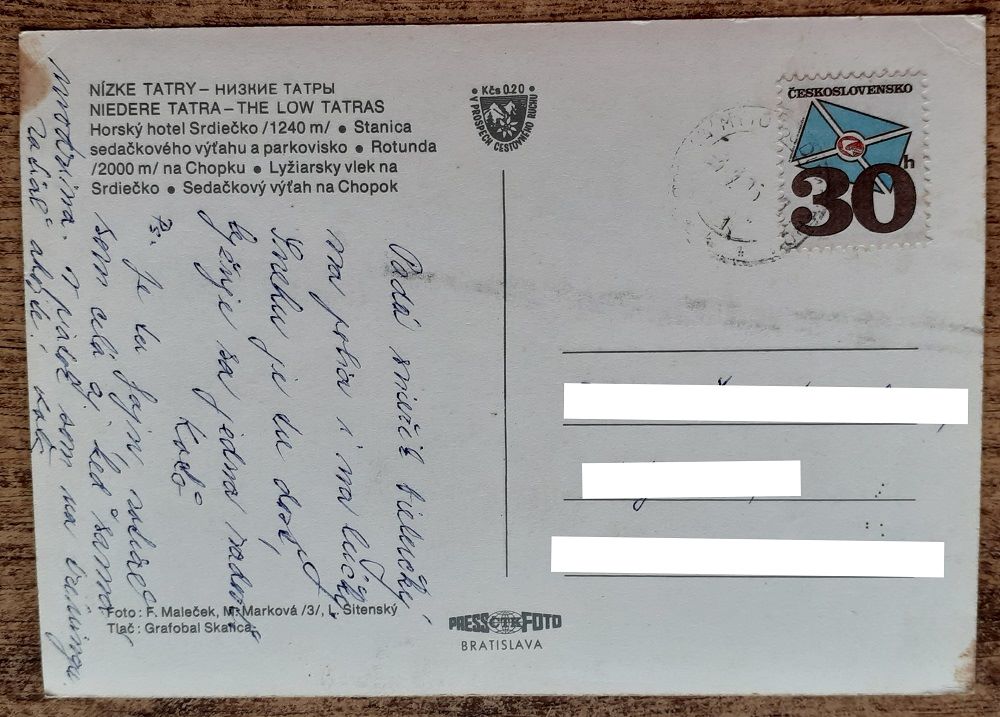 NÍZKE TATRY – НИЗКИЕ ТАТРЫ
NIEDERE TATRA – THE LOW TATRAS
Horský hotel Srdiečko /1240 m/ ● Stanica
sedačkového výťahu a parkovisko ● Rotunda
/2000 m/ na Chopku ● Lyžiarsky vlek na
Srdiečko ● Sedačkový výťah na Chopok
Kčs 0.20
V PROSPECH CESTOVNÉHO RUCHU
ČESKOSLOVENSKO
30 h
Padá sniežik bielučký
na polia i na lúčky
Snehu je tu dosť,
lyžuje sa jedna radosť
P.s. Je tu fajn,
som celá aj keď samá
modrina. V piatok som na
zatiaľ ahoj
Foto: F. Maleček, M. Marková /3/, L. Sitenský
Tlač: Grafobal Skalica
PRESSČTKFOTO
BRATISLAVA